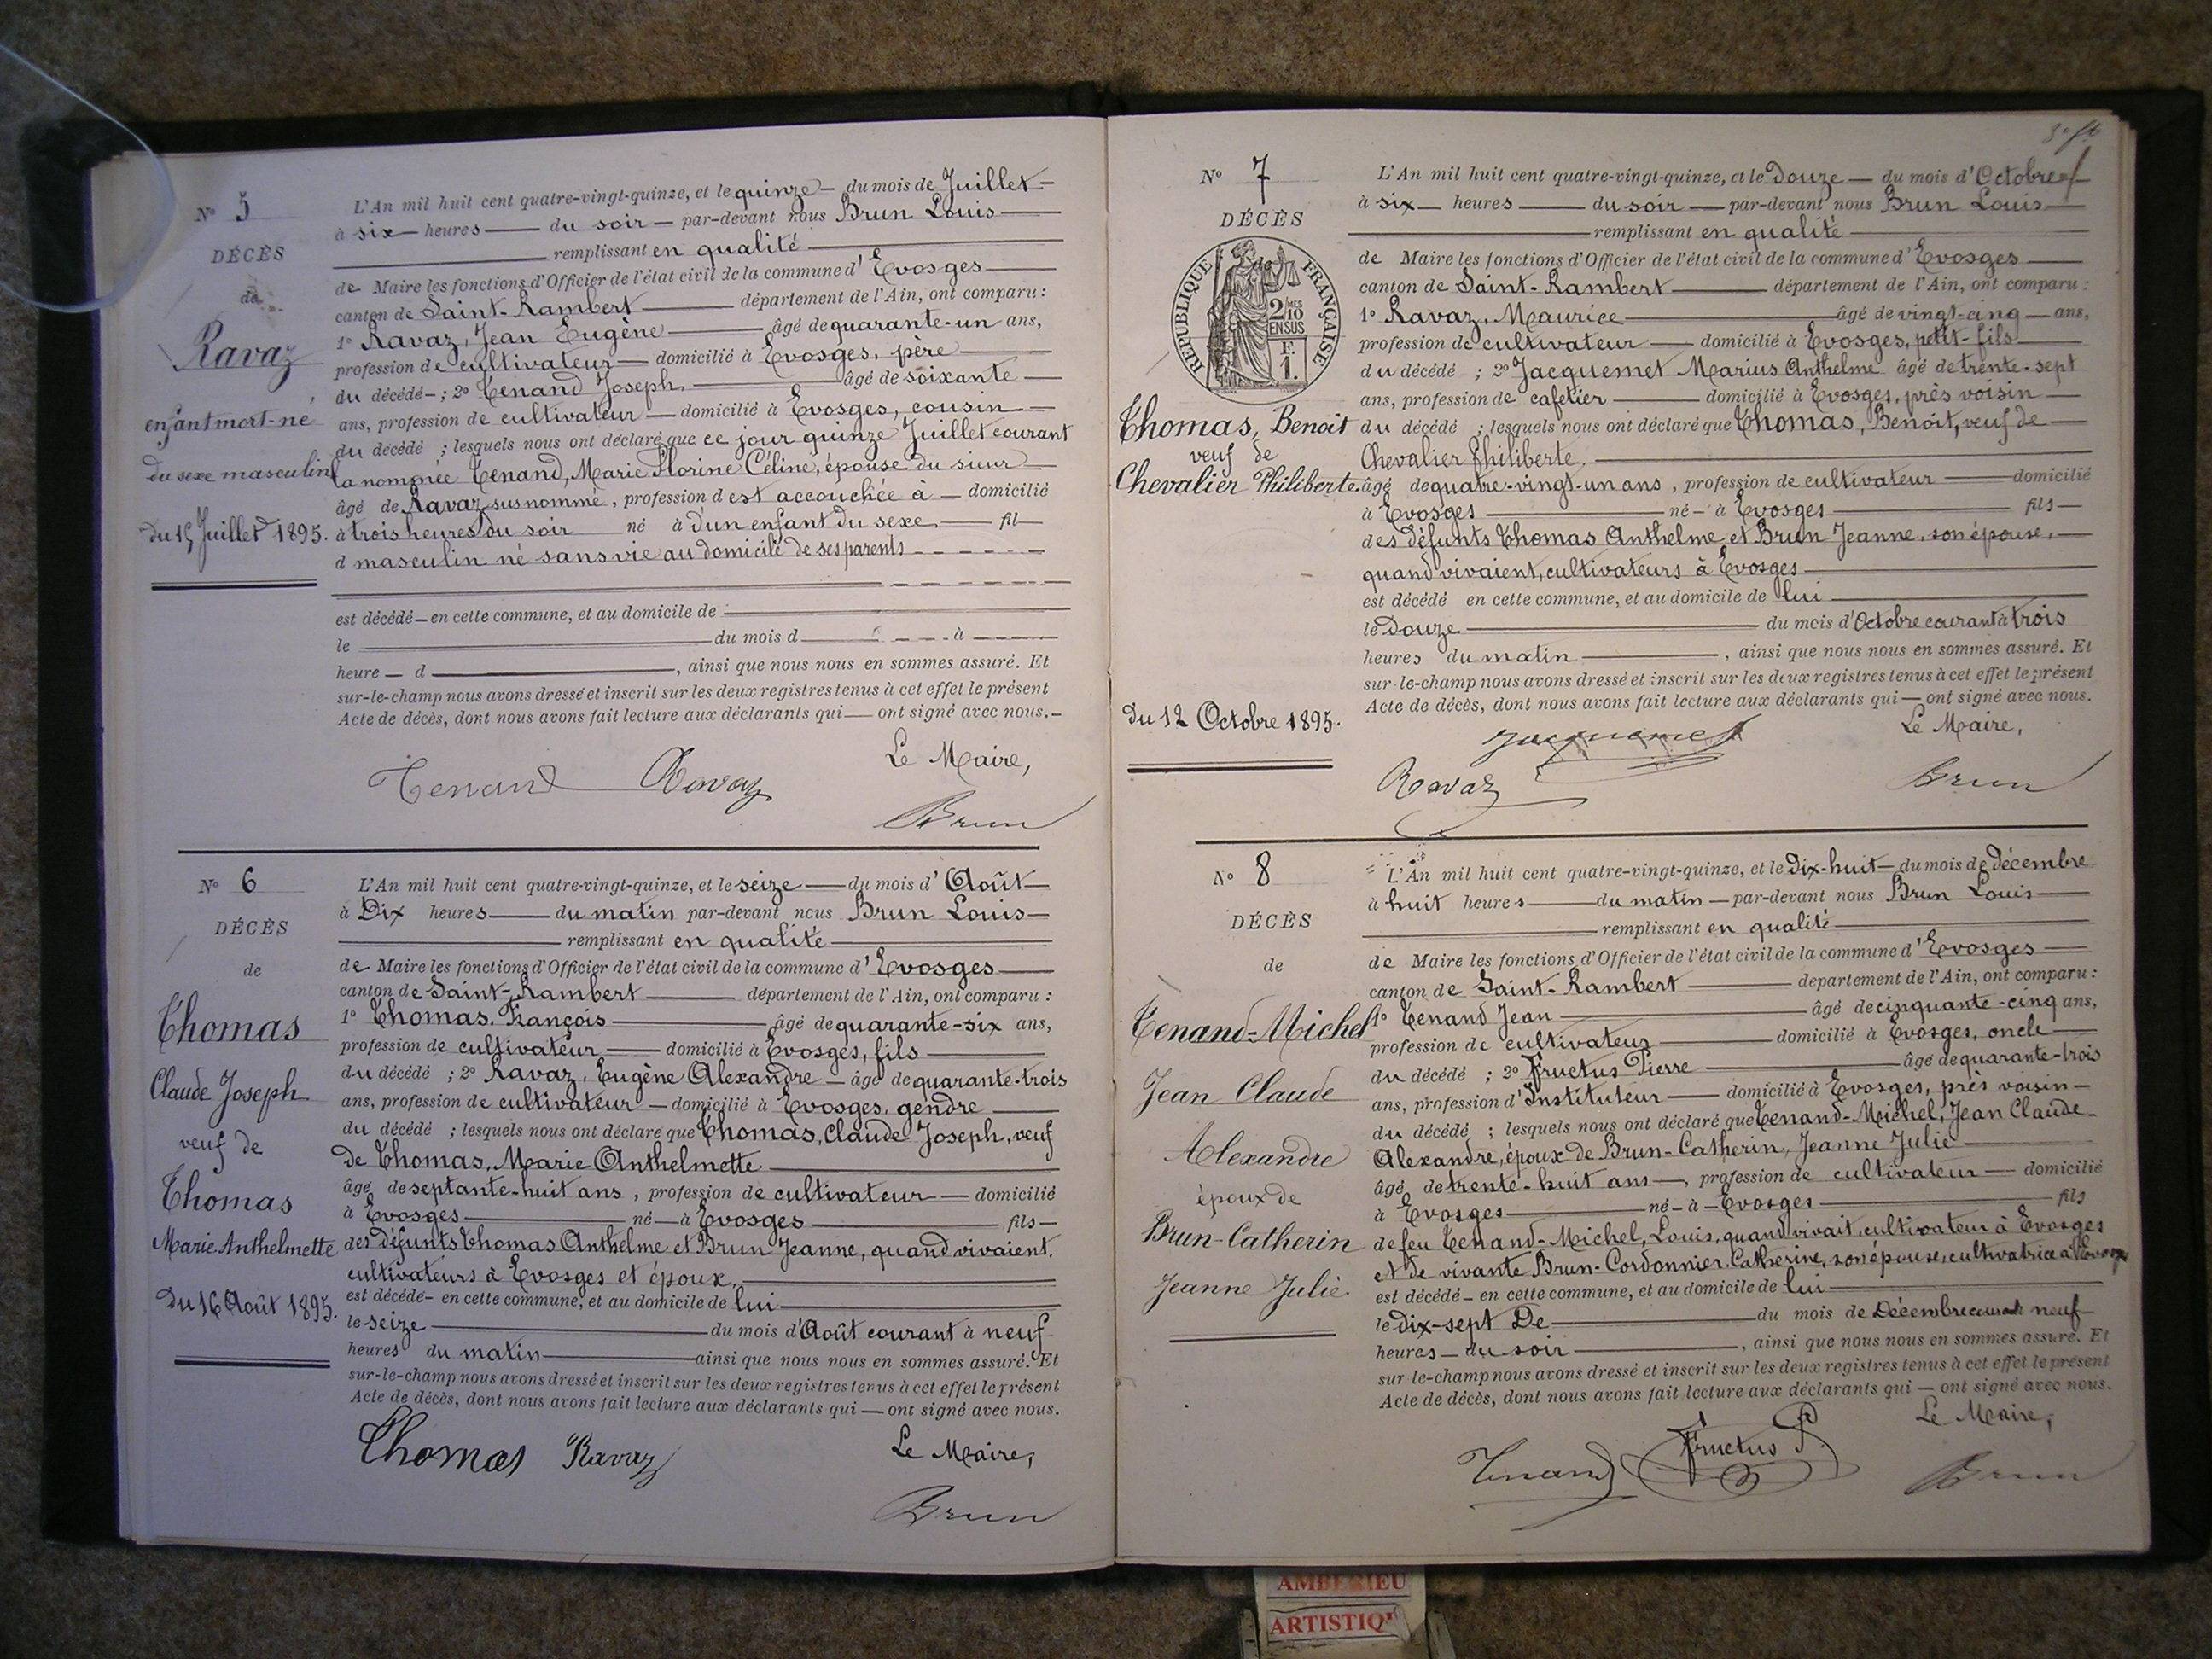 N° 5
DÉCÈS
de
Ravaz
enfant mort-né
du sexe masculin
du 15 Juillet 1895.
L'An mil huit cent quatre-vingt-quinze, et le quinze — du mois de Juillet —
à six — heures — du soir — par-devant nous Brun Louis —
remplissant en qualité
de Maire les fonctions d'Officier de l'état civil de la commune d'Evosges
canton de Saint-Rambert — département de l'Ain, ont comparu :
1° Ravaz, Jean Eugène — âgé de quarante-un ans,
profession de cultivateur — domicilié à Evosges, père
du décédé — ; 2° Tenand Joseph — âgé de soixante —
ans, profession de cultivateur — domicilié à Evosges, cousin —
du décédé ; lesquels nous ont déclaré que ce jour quinze Juillet courant
la nommée Tenand, Marie Florine Céline, épouse du sieur
âgé de Ravaz susnommé, profession d est accouchée à — domicilié
à trois heures du soir né à d'un enfant du sexe — fil —
d masculin né sans vie au domicile de ses parents
est décédé — en cette commune, et au domicile de
le — du mois d — à
heure — d — , ainsi que nous nous en sommes assuré. Et
sur-le-champ nous avons dressé et inscrit sur les deux registres tenus à cet effet le présent
Acte de décès, dont nous avons fait lecture aux déclarants qui — ont signé avec nous. —
Le Maire,
Tenand Ravaz
Brun
N° 6
DÉCÈS
de
Thomas
Claude Joseph
veuf de
Thomas
Marie Anthelmette
du 16 Août 1895.
L'An mil huit cent quatre-vingt-quinze, et le seize — du mois d'Août —
à Dix heures — du matin par-devant nous Brun Louis —
remplissant en qualité
de Maire les fonctions d'Officier de l'état civil de la commune d'Evosges
canton de Saint-Rambert — département de l'Ain, ont comparu :
1° Thomas, François — âgé de quarante-six ans,
profession de cultivateur — domicilié à Evosges, fils
du décédé ; 2° Ravaz, Eugène Alexandre — âgé de quarante-trois
ans, profession de cultivateur — domicilié à Evosges, gendre
du décédé ; lesquels nous ont déclaré que Thomas, Claude Joseph, veuf
de Thomas, Marie Anthelmette
âgé de septante-huit ans , profession de cultivateur — domicilié
à Evosges — né — à Evosges — fils —
des défunts Thomas Anthelme et Brun Jeanne, quand vivaient,
cultivateurs à Evosges et époux,
est décédé — en cette commune, et au domicile de lui
le seize — du mois d'Août courant à neuf
heures du matin — ainsi que nous nous en sommes assuré. Et
sur-le-champ nous avons dressé et inscrit sur les deux registres tenus à cet effet le présent
Acte de décès, dont nous avons fait lecture aux déclarants qui — ont signé avec nous.
Le Maire,
Thomas Ravaz
Brun
N° 7
DÉCÈS
de
RÉPUBLIQUE FRANÇAISE
2 MES
10
EN SUS
F.
1.
Thomas, Benoit
veuf de
Chevalier Philiberte.
du 12 Octobre 1895.
L'An mil huit cent quatre-vingt-quinze, et le Douze — du mois d'Octobre
à six — heures — du soir — par-devant nous Brun Louis —
remplissant en qualité
de Maire les fonctions d'Officier de l'état civil de la commune d'Evosges
canton de Saint-Rambert — département de l'Ain, ont comparu :
1° Ravaz, Maurice — âgé de vingt-cinq — ans,
profession de cultivateur — domicilié à Evosges, petit-fils
du décédé ; 2° Jacquemet Marius Anthelme âgé de trente-sept
ans, profession de cafetier — domicilié à Evosges, près voisin —
du décédé ; lesquels nous ont déclaré que Thomas, Benoit, veuf de —
Chevalier Philiberte,
âgé de quatre-vingt-un ans , profession de cultivateur — domicilié
à Evosges — né — à Evosges — fils —
des défunts Thomas Anthelme et Brun Jeanne, son épouse, —
quand vivaient, cultivateurs à Evosges
est décédé en cette commune, et au domicile de lui
le Douze — du mois d'Octobre courant à trois
heures du matin — , ainsi que nous nous en sommes assuré. Et
sur-le-champ nous avons dressé et inscrit sur les deux registres tenus à cet effet le présent
Acte de décès, dont nous avons fait lecture aux déclarants qui — ont signé avec nous.
Le Maire,
Jacquemet
Ravaz
Brun
N° 8
DÉCÈS
de
Tenand-Michel
Jean Claude
Alexandre
époux de
Brun-Catherin
Jeanne Julie.
L'An mil huit cent quatre-vingt-quinze, et le Dix-huit — du mois de décembre
à huit heures — du matin — par-devant nous Brun Louis —
remplissant en qualité
de Maire les fonctions d'Officier de l'état civil de la commune d'Evosges
canton de Saint-Rambert — département de l'Ain, ont comparu :
1° Tenand Jean — âgé de cinquante-cinq ans,
profession de cultivateur — domicilié à Evosges, oncle
du décédé ; 2° Fructus Pierre — âgé de quarante-trois
ans, profession d'Instituteur — domicilié à Evosges, près voisin —
du décédé ; lesquels nous ont déclaré que Tenand-Michel, Jean Claude
Alexandre, époux de Brun-Catherin, Jeanne Julie
âgé de trente-huit ans — , profession de cultivateur — domicilié
à Evosges — né — à — Evosges — fils
de feu Tenand-Michel, Louis, quand vivait, cultivateur à Evosges
et de vivante Brun-Cordonnier, Catherine, son épouse, cultivatrice à Evosges
est décédé — en cette commune, et au domicile de lui
le dix-sept De — du mois de Décembre courant neuf
heures — du soir — , ainsi que nous nous en sommes assuré. Et
sur-le-champ nous avons dressé et inscrit sur les deux registres tenus à cet effet le présent
Acte de décès, dont nous avons fait lecture aux déclarants qui — ont signé avec nous.
Le Maire,
Tenand Fructus P.
Brun
AMBERIEU
ARTISTIQ